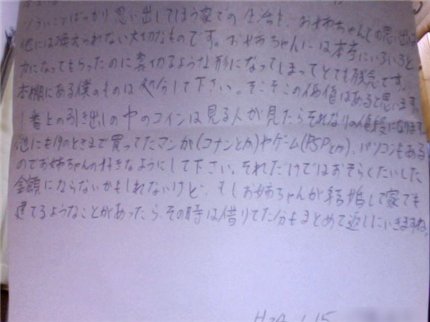 ういうことばっかり思い出してしまう家での生活と、お姉ちゃんとの思い出は
他には換えられない大切なものです。お姉ちゃんには本当にいろいろと
力になってもらったのに裏切るような形になってしまってとても残念です。
本棚にある僕のものは処分して下さい。そこそこの価値はあると思います。
1番上の引き出しの中のコインは見る人が見たらそれなりの値段になります。
他にも今のときまで買ってたマンガ(コナンとか)やゲーム(PSPとか)、パソコンもある
のでお姉ちゃんの好きなようにして下さい。それだけではおそらくたいした
金額にならないかもしれないけど、もしお姉ちゃんが結婚して家でも
建てるようなことがあったら、その時は借りてた分もまとめて返しにいきますね。